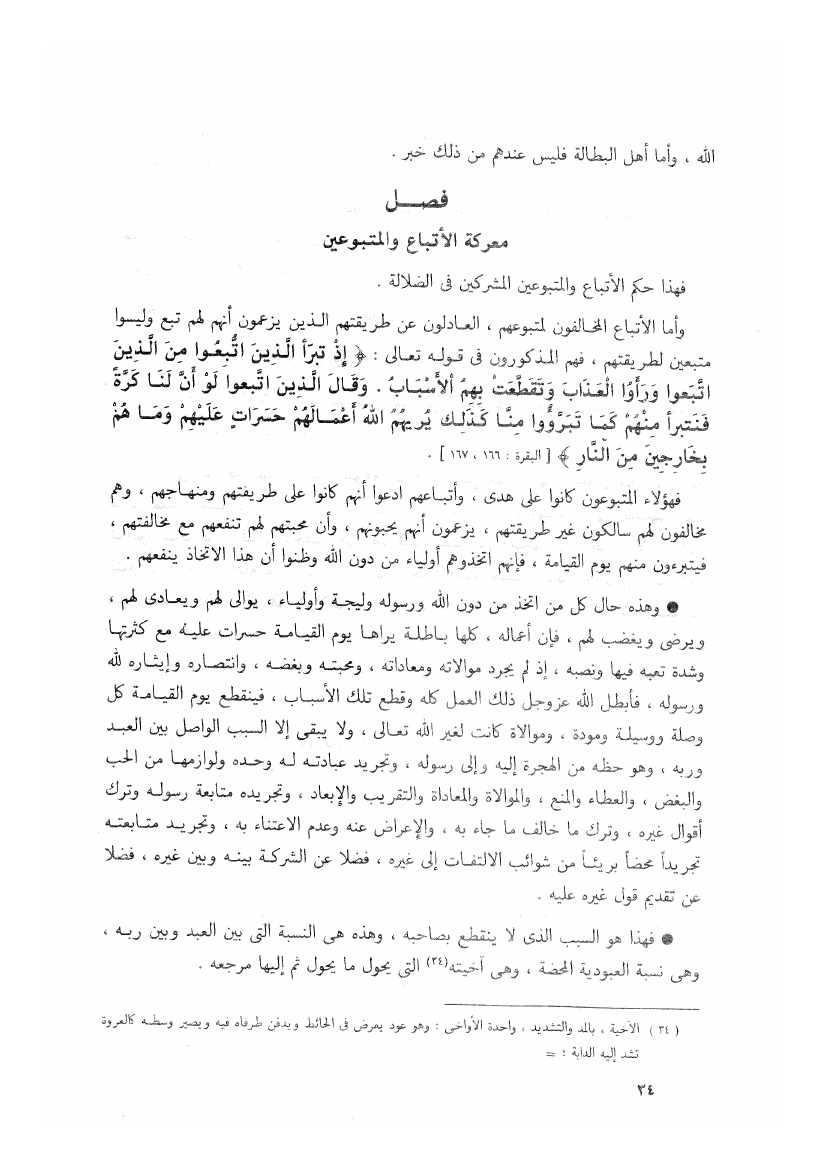 الله ، وأما أهل البطالة فليس عندهم من ذلك خبر .
فصـــل
معركة الأتباع والمتبوعين
فهذا حكم الأتباع والمتبوعين المشركين فى الضلالة .
وأما الأتباع المخالفون لمتبوعهم ، العادلون عن طريقتهم الذين يزعمون أنهم لهم تبع وليسوا
متبعين لطريقتهم ، فهم المذكورون فى قوله تعالى : ﴿ إِذْ تَبَرَّأَ الَّذِينَ اتُّبِعُوا مِنَ الَّذِينَ
اتَّبَعوا وَرَأَوُا الْعَذَابَ وَتَقَطَّعَتْ بِهِمُ الْأَسْبَابُ . وَقَالَ الَّذِينَ اتبعوا لَوْ أَنَّ لَنَا كَرَّةً
فَنَتبرأ مِنْهُمْ كَمَا تَبَرَّؤُوا مِنَّا كَذَلِك يُرِيهُمُ اللهُ أَعْمَالَهُمْ حَسَرَاتٍ عَلَيْهِمْ وَمَا هُمْ
بِخَارِجِينَ مِنَ النَّارِ ﴾ [ البقرة : ١٦٦ ، ١٦٧ ] .
فهؤلاء المتبوعون كانوا على هدى ، وأتباعهم ادعوا أنهم كانوا على طريقتهم ومنهاجهم ، وهم
مخالفون لهم سالكون غير طريقتهم ، يزعمون أنهم يحبونهم ، وأن محبتهم لهم تنفعهم مع مخالفتهم ،
فيتبرءون منهم يوم القيامة ، فإنهم اتخذوهم أولياء من دون الله وظنوا أن هذا الاتخاذ ينفعهم .
● وهذه حال كل من اتخذ من دون الله ورسوله وليجة وأولياء ، يوالى لهم ويعادى لهم ،
ويرضى ويغضب لهم ، فإن أعماله ، كلها باطلة يراها يوم القيامة حسرات عليه مع كثرتها
وشدة تعبه فيها ونصبه ، إذ لم يجرد موالاته ومعاداته ، ومحبته وبغضه ، وانتصاره وإيثاره لله
ورسوله ، فأبطل الله عزوجل ذلك العمل كله وقطع تلك الأسباب ، فينقطع يوم القيامة كل
وصلة ووسيلة ومودة ، وموالاة كانت لغير الله تعالى ، ولا يبقى إلا السبب الواصل بين العبد
وربه ، وهو حظه من الهجرة إليه وإلى رسوله ، وتجريد عبادته له وحده ولوازمها من الحب
والبغض ، والعطاء والمنع ، والموالاة والمعاداة والتقريب والإبعاد ، وتجريده متابعة رسوله وترك
أقوال غيره ، وترك ما خالف ما جاء به ، والإعراض عنه وعدم الاعتناء به ، وتجريد متابعته
تجريداً محضاً بريئاً من شوائب الالتفات إلى غيره ، فضلا عن الشركة بينه وبين غيره ، فضلا
عن تقديم قول غيره عليه .
● فهذا هو السبب الذى لا ينقطع بصاحبه ، وهذه هى النسبة التى بين العبد وبين ربه ،
وهى نسبة العبودية المحضة ، وهى آخيته(٣٤) التى يحول ما يحول ثم إليها مرجعه .
( ٣٤ ) الآخية ، بالمد والتشديد ، واحدة الأواخى : وهو عود يعرض فى الحائط ويدفن طرفاه فيه ويصير وسطه كالعروة
تشد إليه الدابة ؛ =
٣٤